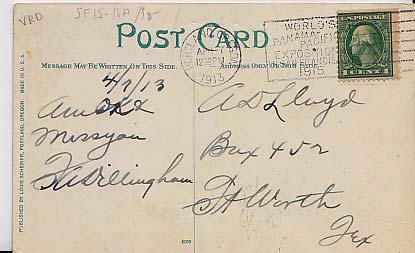 VRD
SF15-16A/95-
POST CARD
MESSAGE MAY BE WRITTEN ON THIS SIDE.
ADDRESS ONLY ON THIS SIDE.
PORTLAND, OREG.
APR 7
12:30 PM
1913
WORLD'S
PANAMA-PACIFIC
EXPOSITION
SAN FRANCISCO
1915
1 CENT 1
4/7/13
Am OKX
Miss you
F A Dillingham
A D Lloyd
Box 452
Ft Worth
Tex
PUBLISHED BY LOUIS SCHEINER, PORTLAND, OREGON MADE IN U.S.A.